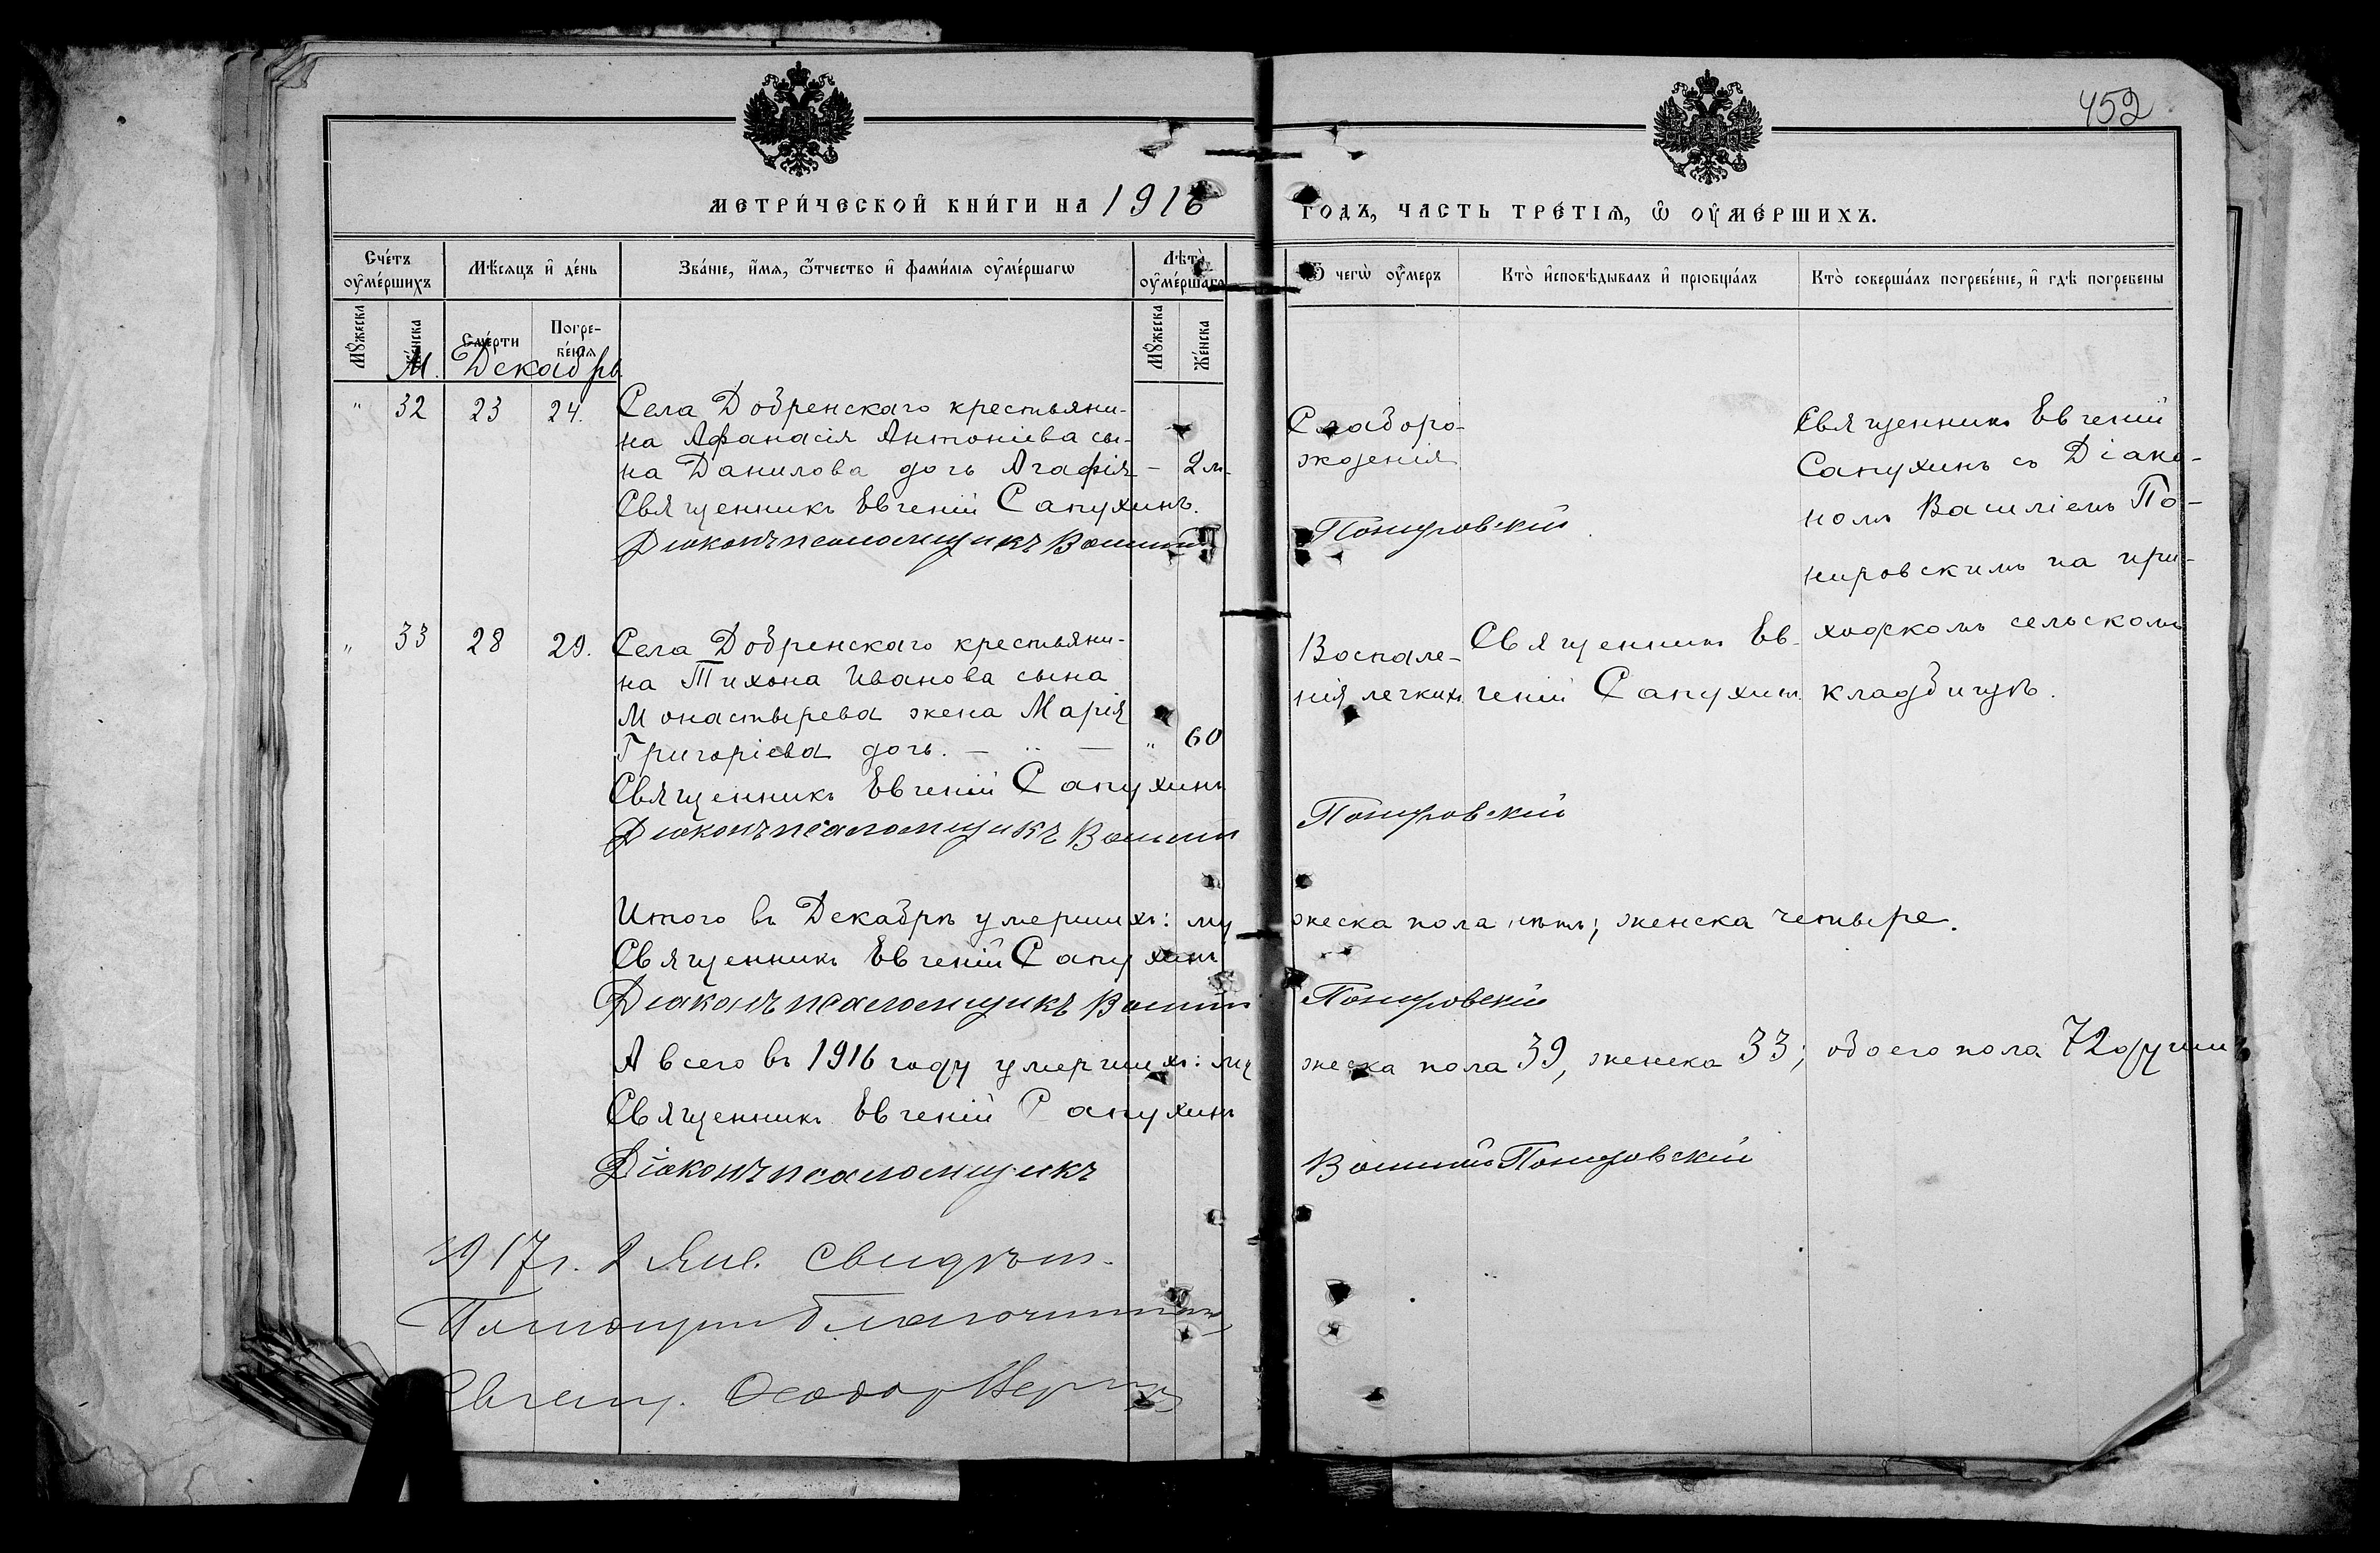 452
МЕТРИ́ЧЕСКОЙ КНИ́ГИ НА 1916 ГОДЪ, ЧАСТЬ ТРЕ́ТІѦ, Ѡ ОУ҆МЕ́РШИХЪ.
Сче́тъ оу҆ме́ршихъ
Мѣ́сѧцъ и҆ де́нь
Зва́нїе, и҆́мѧ, ѻ҆́тчество и҆ фамилїѧ оу҆ме́ршагѡ
Лѣ́та оу҆ме́ршагѡ
Ѿ чегѡ̀ оу҆́меръ
Кто̀ и҆сповѣ́дывалъ и҆ прїобща́лъ
Кто̀ соверша́лъ погребе́нїе, и҆ гдѣ̀ погребены
Мꙋ́жеска
Же́нска
Сме́рти
Погре-
бе́нїѧ
Мꙋ́жеска
Же́нска
М. Декабрь.
" 32 23 24. Села Добренскаго крестьяни-
на Аѳанасія Антоніева сы-
на Данилова дочь Агафія — 2 м.
Священникъ Евгеній Сапухинъ.
Діаконъ псаломщикъ Василій Понировскій
Слаборо-
жденія
Священникъ Евгеній
Сапухинъ съ Діако-
номъ Василіемъ По-
нировскимъ на при-
ходскомъ сельскомъ
кладбищѣ.
" 33 28 29. Села Добренскаго крестьяни-
на Тихона Иванова сына
Монастырева жена Марія
Григоріева дочь. — " — " 60
Священникъ Евгеній Сапухинъ
Діаконъ псаломщикъ Василій Понировскій
Воспале-
нія легкихъ.
Священникъ Ев-
геній Сапухинъ.
Итого въ Декабрѣ умершихъ: мужеска пола нѣтъ; женска четыре.
Священникъ Евгеній Сапухинъ
Діаконъ псаломщикъ Василій Понировскій
А всего въ 1916 году умершихъ: мужеска пола 39, женска 33; обоего пола 72 души
Священникъ Евгеній Сапухинъ
Діаконъ псаломщикъ Василій Понировскій
1917 г. 2 Янв. Свидѣт.
Помощник Благочиннаго
Священ. Ѳеодор